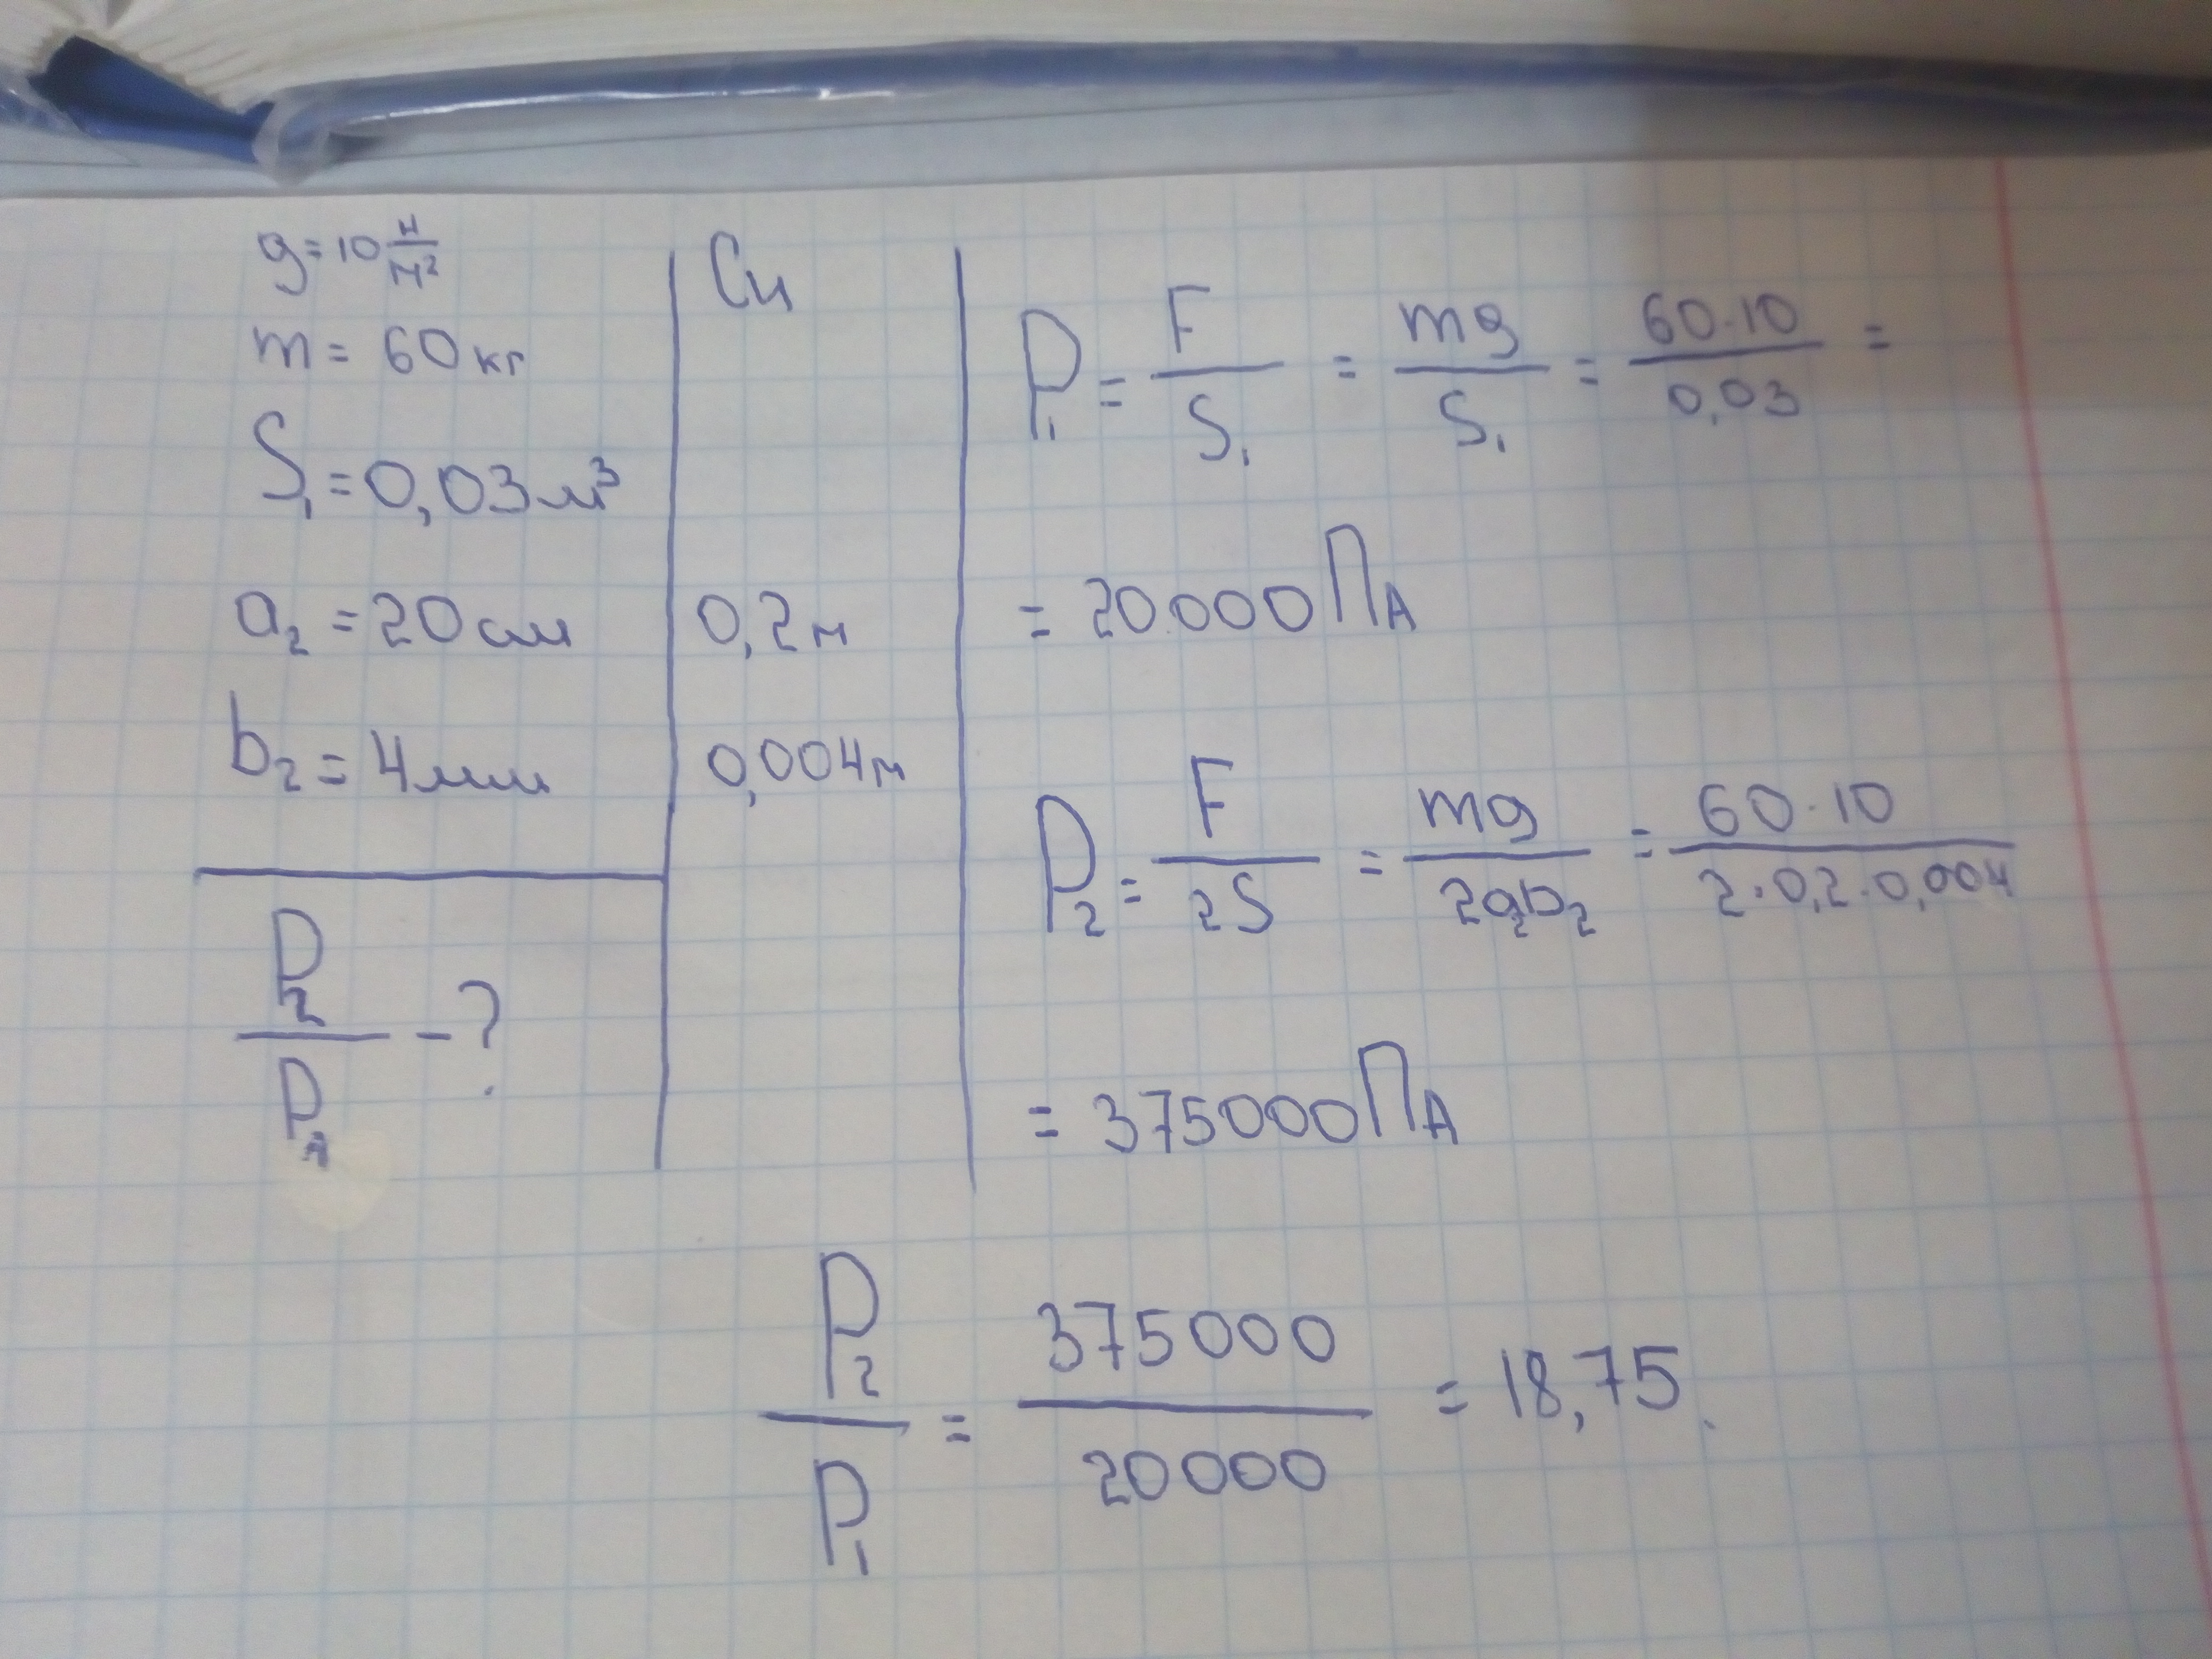 g = 10 н/м²
m = 60 кг
S₁ = 0,03 м³
a₂ = 20 см
b₂ = 4 мм
P₂/P₁ - ?
Си
0,2 м
0,004 м
P₁ = F/S₁ = mg/S₁ = 60·10/0,03 =
= 20000 ПА
P₂ = F/2S = mg/2a₂b₂ = 60·10/2·0,2·0,004
= 375000 ПА
P₂/P₁ = 375000/20000 = 18,75.